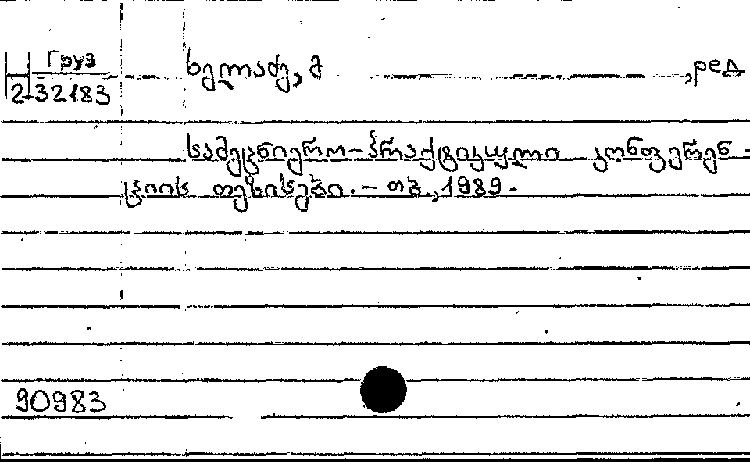 Груз
ხელაძე, მ ,ред
2-32183
სამეცნიერო-პრაქტიკული კონფერენ-
ციის თეზისები. – თბ., 1989.
90983